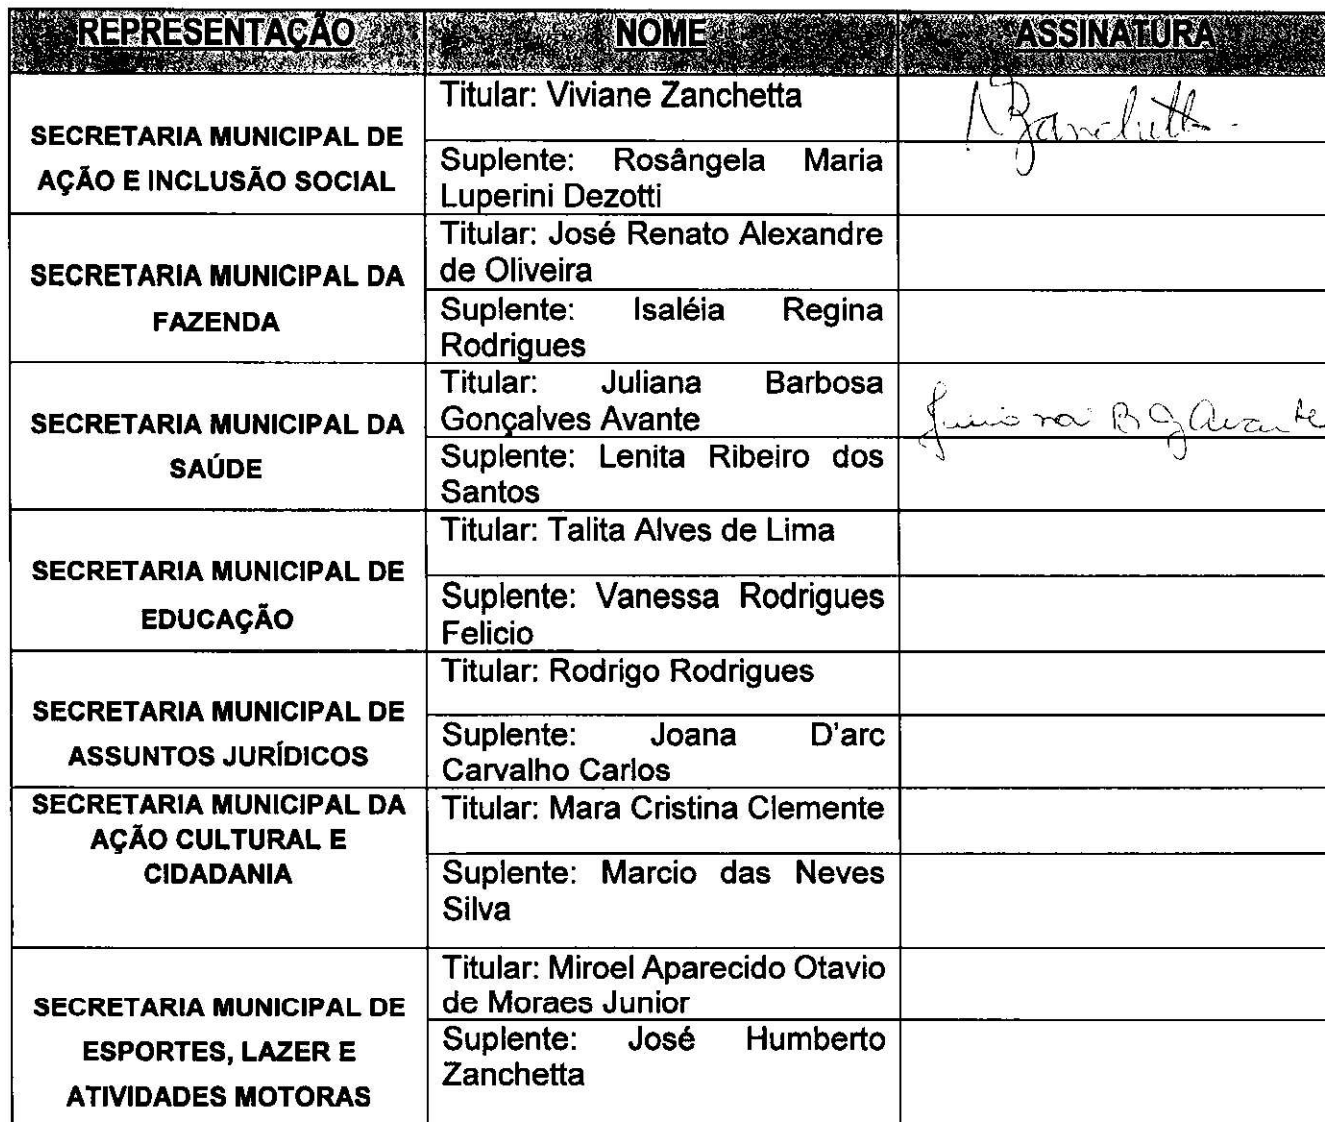 REPRESENTAÇÃO NOME ASSINATURA
SECRETARIA MUNICIPAL DE
AÇÃO E INCLUSÃO SOCIAL
Titular: Viviane Zanchetta
Zanchetta
Suplente: Rosângela Maria
Luperini Dezotti
SECRETARIA MUNICIPAL DA
FAZENDA
Titular: José Renato Alexandre
de Oliveira
Suplente: Isaléia Regina
Rodrigues
SECRETARIA MUNICIPAL DA
SAÚDE
Titular: Juliana Barbosa
Gonçalves Avante
Juliana B G Avante
Suplente: Lenita Ribeiro dos
Santos
SECRETARIA MUNICIPAL DE
EDUCAÇÃO
Titular: Talita Alves de Lima
Suplente: Vanessa Rodrigues
Felicio
SECRETARIA MUNICIPAL DE
ASSUNTOS JURÍDICOS
Titular: Rodrigo Rodrigues
Suplente: Joana D'arc
Carvalho Carlos
SECRETARIA MUNICIPAL DA
AÇÃO CULTURAL E
CIDADANIA
Titular: Mara Cristina Clemente
Suplente: Marcio das Neves
Silva
SECRETARIA MUNICIPAL DE
ESPORTES, LAZER E
ATIVIDADES MOTORAS
Titular: Miroel Aparecido Otavio
de Moraes Junior
Suplente: José Humberto
Zanchetta